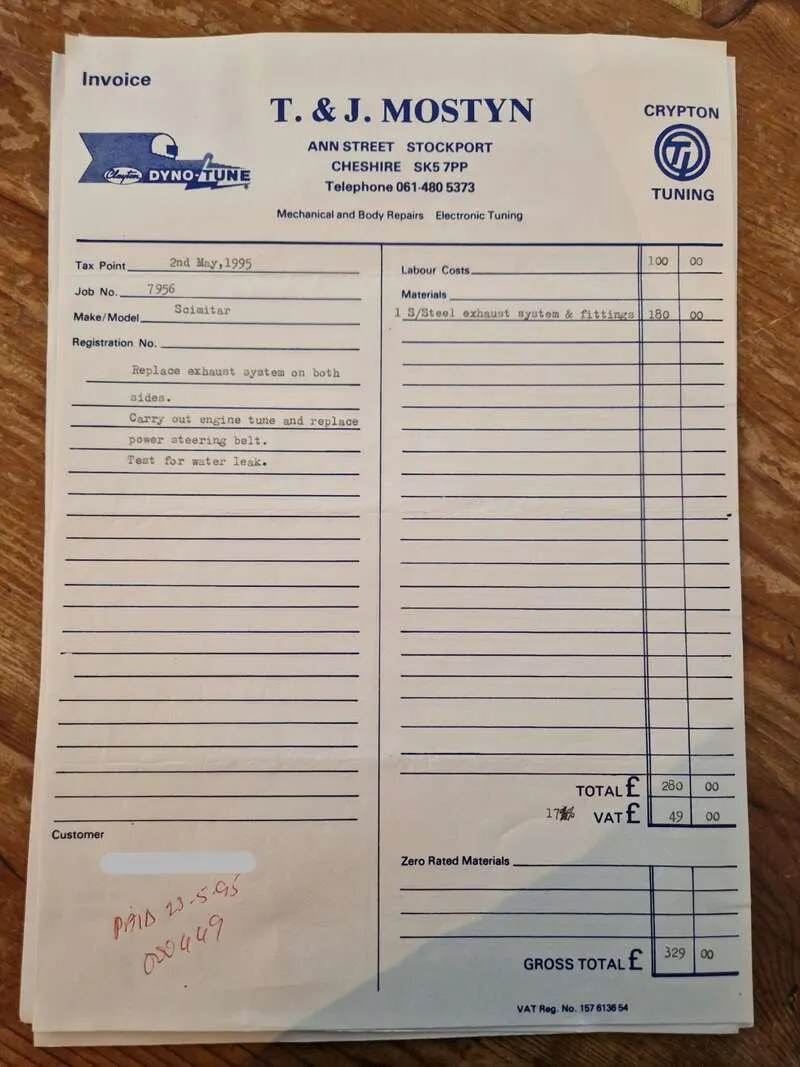 Invoice
T. & J. MOSTYN
ANN STREET STOCKPORT
CHESHIRE SK5 7PP
Telephone 061-480 5373
Mechanical and Body Repairs Electronic Tuning
Clayton DYNO-TUNE
CRYPTON
TUNING
Tax Point 2nd May,1995
Job No. 7956
Make/Model Scimitar
Registration No.
Replace exhaust system on both
sides.
Carry out engine tune and replace
power steering belt.
Test for water leak.
Labour Costs 100 00
Materials
1 S/Steel exhaust system & fittings 180 00
TOTAL £ 280 00
VAT £ 49 00
Zero Rated Materials
GROSS TOTAL £ 329 00
VAT Reg. No. 157 6136 54
Customer
PAID 23-5-95
000449